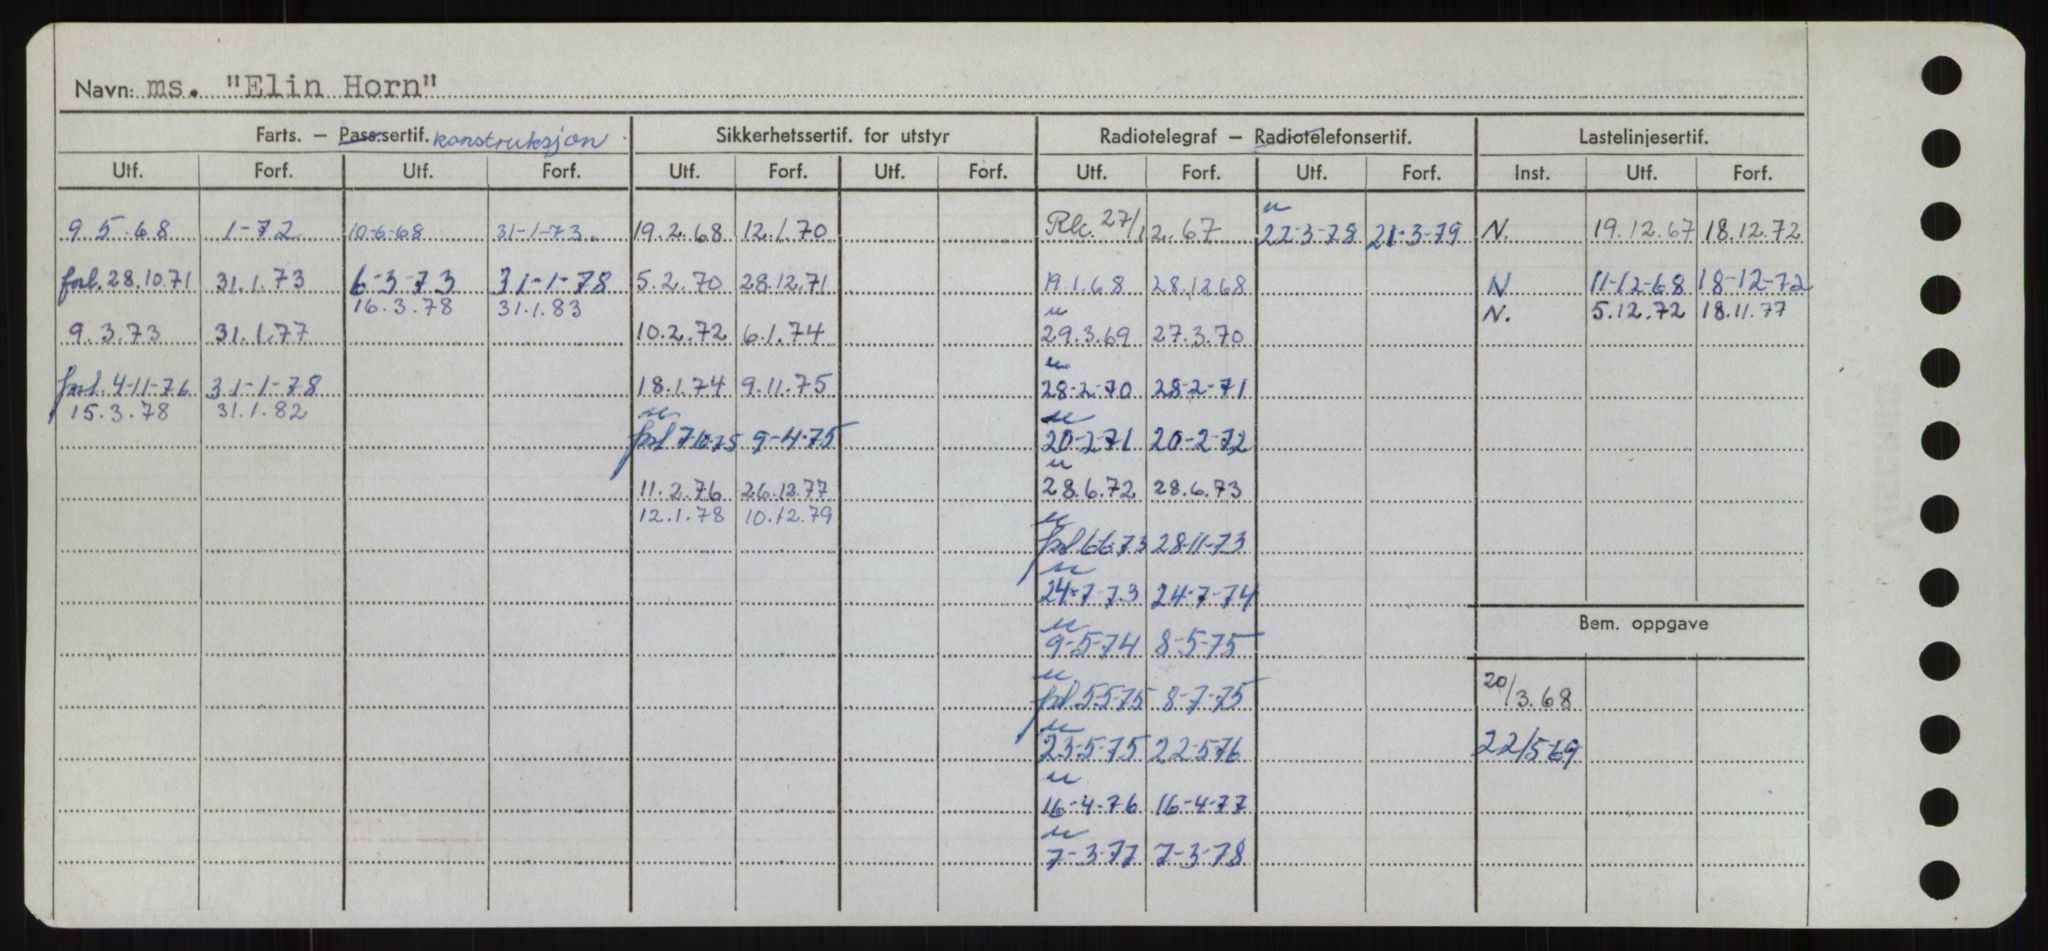 Navn: ms. "Elin Horn"
Farts. – Pass.sertif. konstruksjon Sikkerhetssertif. for utstyr Radiotelegraf – Radiotelefonsertif. Lastelinjesertif.
Utf. Forf. Utf. Forf. Utf. Forf. Utf. Forf. Utf. Forf. Utf. Forf. Inst. Utf. Forf.
9.5.68 1-72 10-6-68 31-1-73. 19.2.68 12.1.70 27/12.67 u 22-3-78 21-3-79 N. 19.12.67 18.12.72
forl. 28.10.71 31.1.73 6-3-73 31-1-78 5.2.70 28.12.71 19.1.68 28.12.68 N 11-12-68 18-12-72
16.3.78 31.1.83 u N. 5.12.72 18.11.77
9.3.73 31.1.77 10.2.72 6.1.74 29.3.69 27.3.70
u
forl. 4-11-76 31-1-78 18.1.74 9.11.75 28-2-70 28-2-71
15.3.78 31.1.82 u u
forl 7-10-75 9-4-75 20-2-71 20-2-72
u
11.2.76 26.12.77 28.6.72 28.6.73
12.1.78 10.12.79 u
forl 6-6-73 28-11-73
u
24-7-73 24-7-74
Bem. oppgave
u
9-5-74 8-5-75
u
forl. 5-5-75 8-7-75 20/3.68
u
23-5-75 22-5-76 22/5-69
u
16-4-76 16-4-77
u
7-3-77 7-3-78